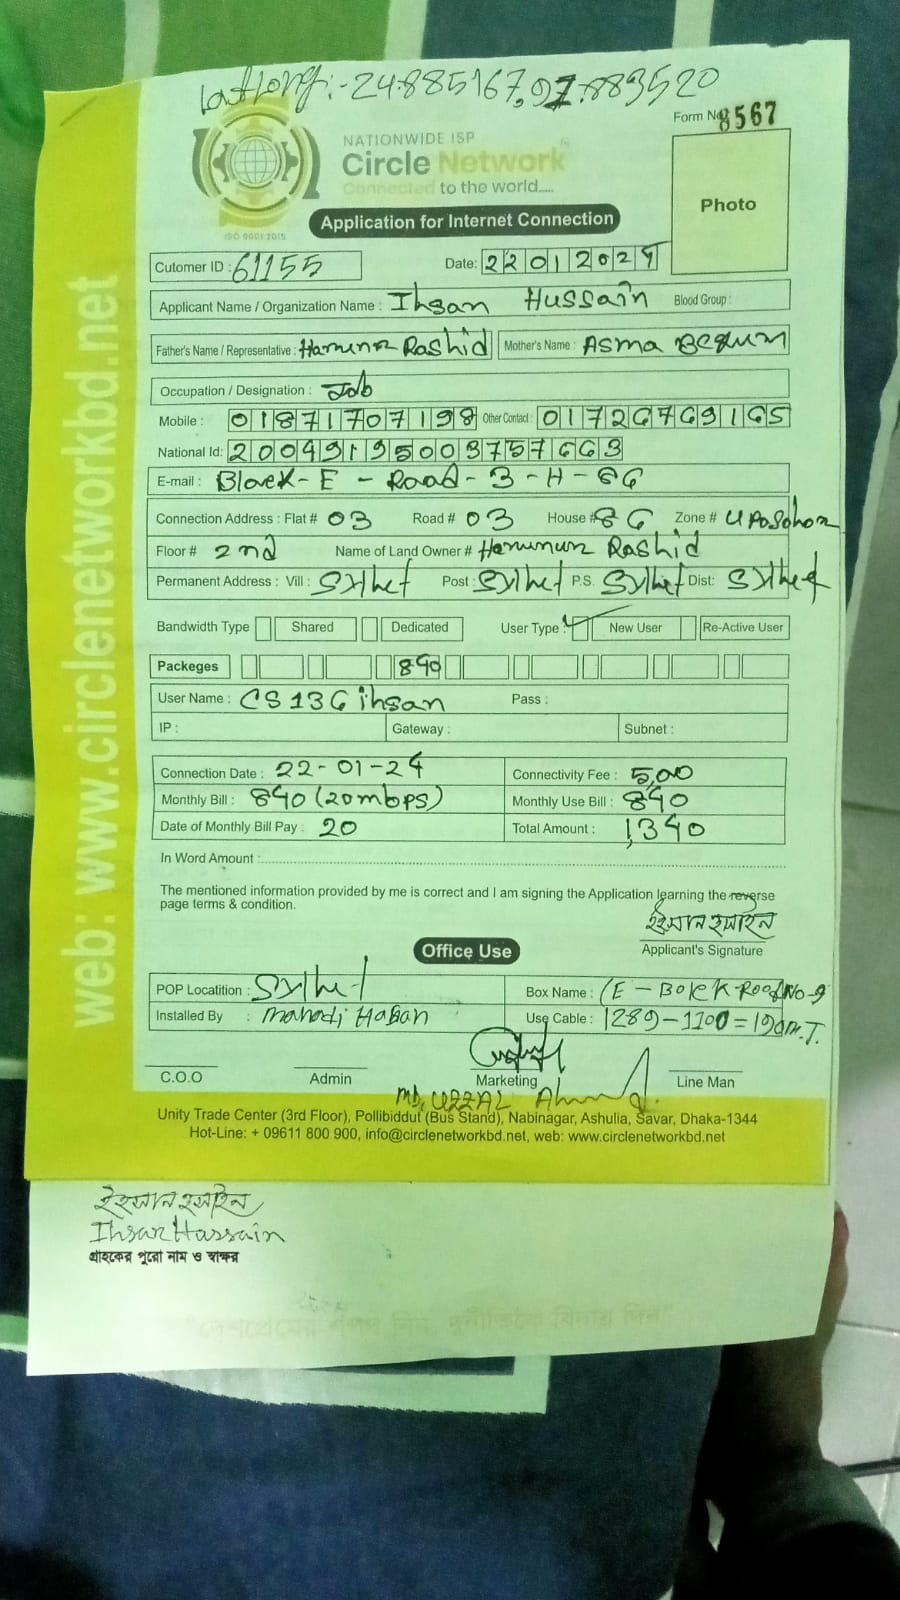 Lat Long:-24.885167,91.883520
Form No 8567
NATIONWIDE ISP
Circle Network
Connected to the world.....
ISO 9001:2015
Application for Internet Connection
Photo
Cutomer ID : 61155
Date: 22012024
Applicant Name / Organization Name : Ihsan Hussain Blood Group :
Father's Name / Representative : Harunur Rashid Mother's Name : Asma Begum
Occupation / Designation : Job
Mobile : 01871707198 Other Contact : 01726769165
National Id: 20049195003757663
E-mail : Block-E-Road-3-H-86
Connection Address : Flat # 03 Road # 03 House # 86 Zone # Uposohor
Floor # 2nd Name of Land Owner # Harunur Rashid
Permanent Address : Vill : Sylhet Post : Sylhet P.S. Sylhet Dist: Sylhet
Bandwidth Type Shared Dedicated User Type : New User Re-Active User
Packeges 840
User Name : CS136ihsan Pass :
IP : Gateway : Subnet :
Connection Date : 22-01-24 Connectivity Fee : 500
Monthly Bill : 840 (20mbps) Monthly Use Bill : 840
Date of Monthly Bill Pay : 20 Total Amount : 1,340
In Word Amount :
The mentioned information provided by me is correct and I am signing the Application learning the reverse
page terms & condition.
ইহসান হুসাইন
Applicant's Signature
Office Use
POP Locatition : Sylhet Box Name : (E-Bolck-Road No-
Installed By : Mahadi Hasan Use Cable : 1289-1100=190m.T.
C.O.O Admin Marketing Line Man
MD, UZZAL Ahmed.
Unity Trade Center (3rd Floor), Pollibiddut (Bus Stand), Nabinagar, Ashulia, Savar, Dhaka-1344
Hot-Line: + 09611 800 900, info@circlenetworkbd.net, web: www.circlenetworkbd.net
web: www.circlenetworkbd.net
ইহসান হুসাইন
Ihsan Hussain
গ্রাহকের পুরো নাম ও স্বাক্ষর
"দেশপ্রেমের শপথ নিন, দুর্নীতিকে বিদায় দিন"